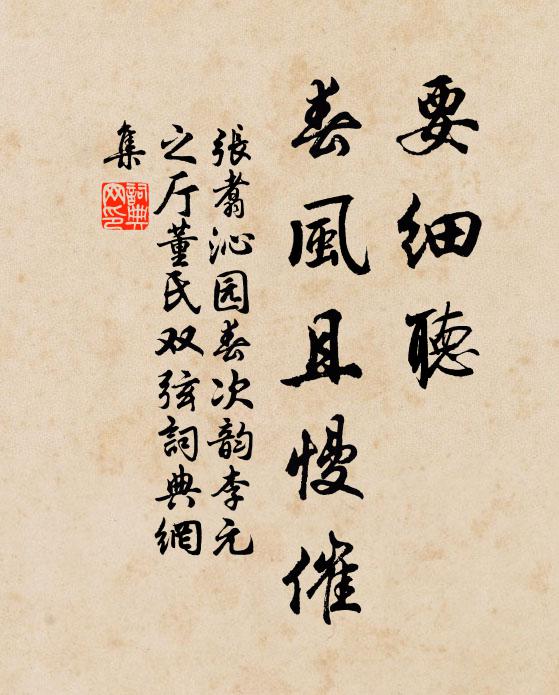 要细聽
春風且慢催
張翥沁园春次韵李元
之厅董氏双弦詞典網
集
詞典网印